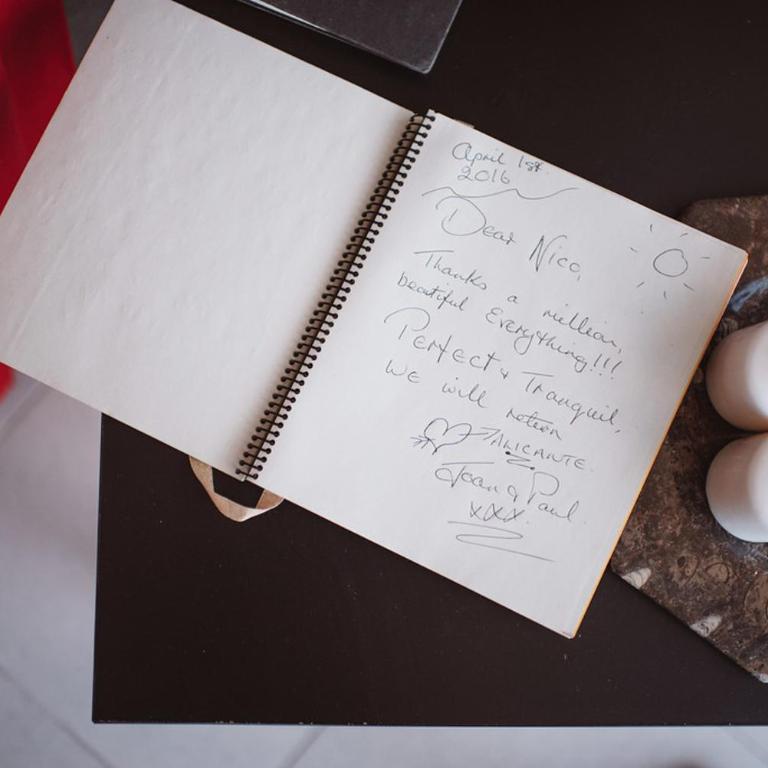 April 1st.
2016
Dear Nico,
Thanks a million,
beatiful Everything!!!
Perfect & Tranquil,
WE will return
ALICANTE.
Joan & Paul
xxx